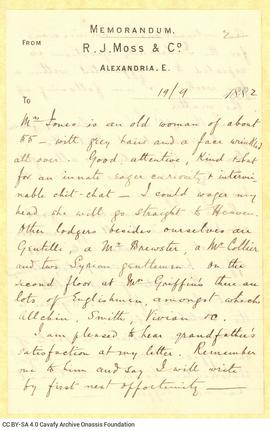 2
MEMORANDUM.
FROM
R. J. MOSS & Co
ALEXANDRIA. E.
19/9 1882
To
Mrs Jones is an old woman of about
55 - with grey hairs and a face wrinkled
all over. Good, attentive, kind & but
for an innate eager curiosity & intermi-
nable chit-chat - I could wager my
head she will go straight to Heaven.
Other lodgers besides ourselves are
Gentilli, a Mr Brewster, a Mr Collier
and two Syrian gentlemen. On the
second floor at Mrs Griffin's there are
lots of Englishmen, amongst which
Allchin, Smith, Vivian &c.
I am pleased to hear grandfather's
satisfaction at my letter. Remember
me to him and say I will write
by first next opportunity —
CC BY-SA 4.0 Cavafy Archive Onassis Foundation